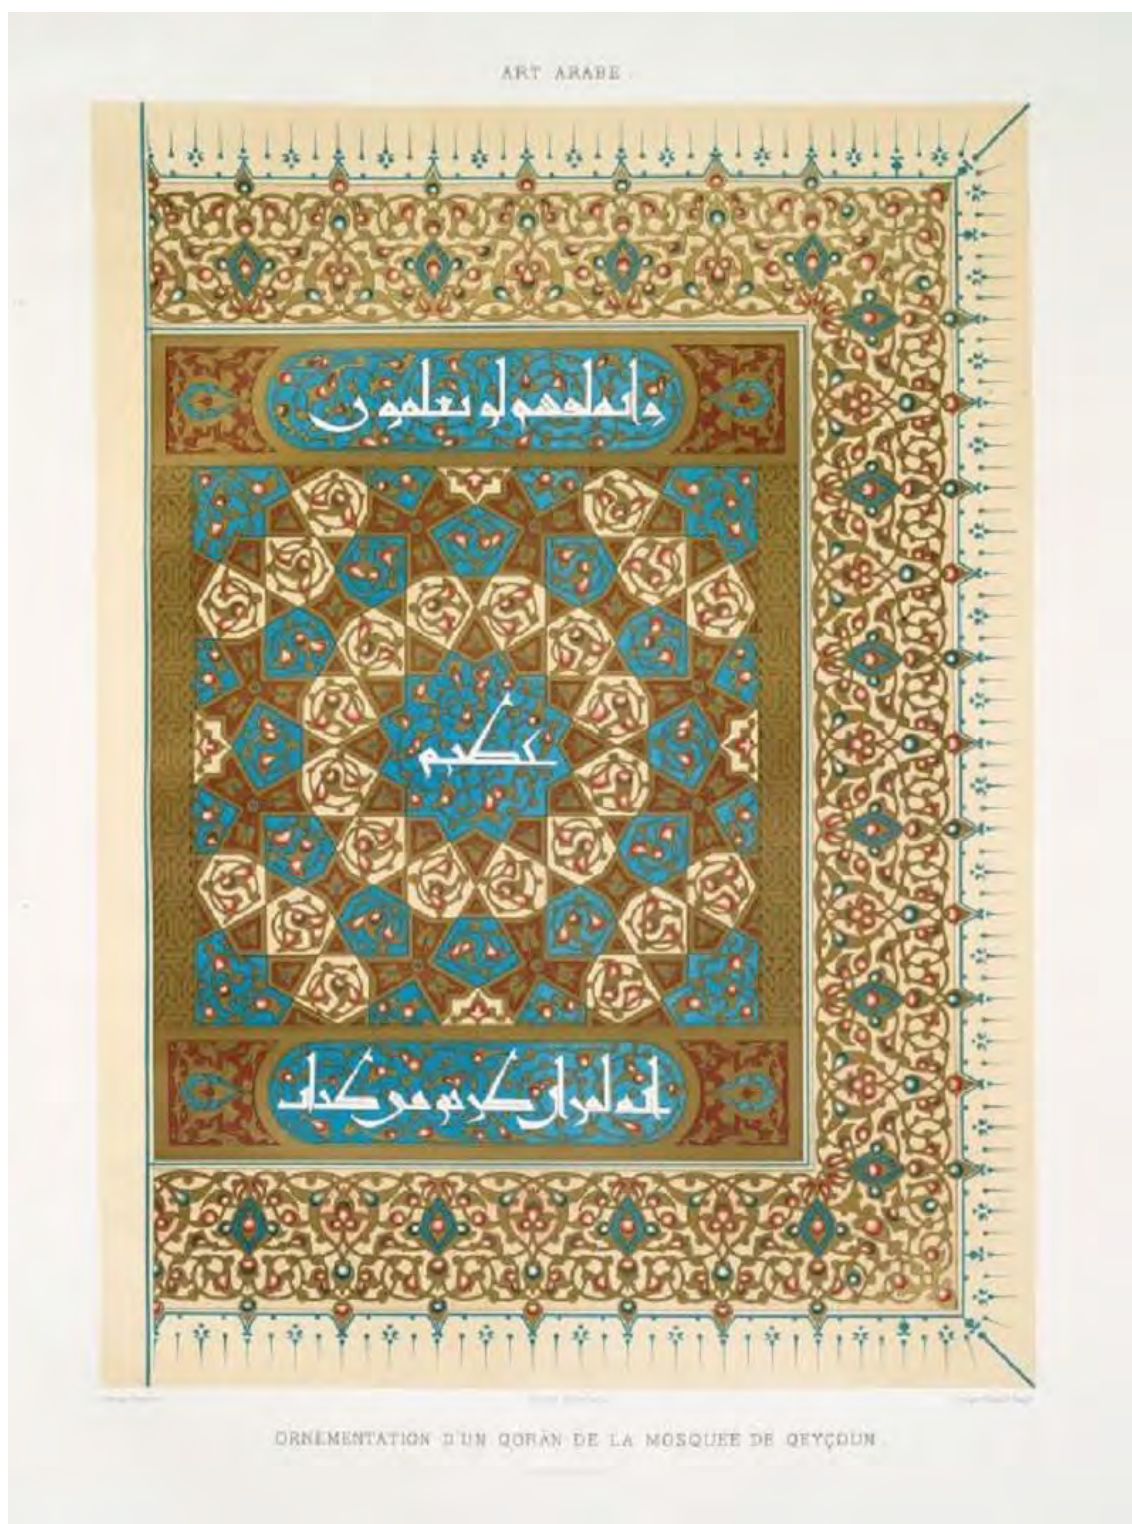 ART ARABE.
وانه لقسم لو تعلمون
عظيم
انه لقران كريم في كتاب
ORNEMENTATION D'UN QORÂN DE LA MOSQUÉE DE QEYÇOUN.